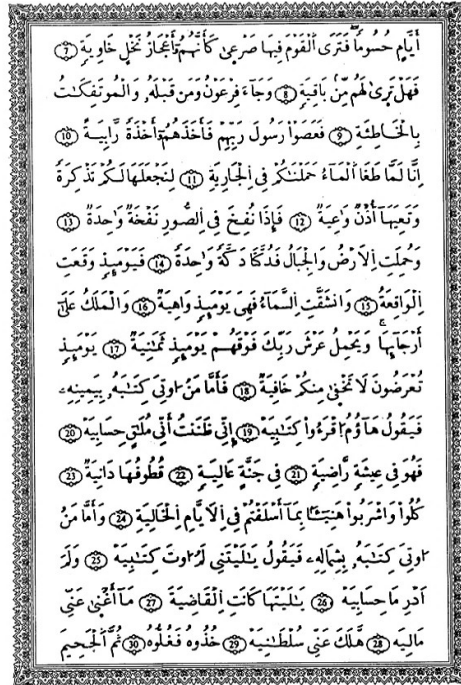 أَيَّامٍ حُسُوماً فَتَرَى اَلْقَوْمَ فِيهَا صَرْعىٰ كَأَنَّهُمُۥٓ أَعْجَازُ نَخْلٍ خَاوِيَةٍ 7
فَهَلْ تَرىٰ لَهُم مِّنۢ بَاقِيَةٍ 8 وَجَآءَ فِرْعَوْنُ وَمَن قَبْلَهُۥ وَالْمُوتَفِكَـٰتُ
بِالْخَاطِئَةِ 9 فَعَصَوْاْ رَسُولَ رَبِّهِمْ فَأَخَذَهُمُۥٓ أَخْذَةً رَّابِيَةً 10
اِنَّا لَمَّا طَغَا اَلْمَآءُ حَمَلْنَـٰكُمْ فِى اِلْجَارِيَةِ 11 لِنَجْعَلَهَا لَكُمْ تَذْكِرَةً
وَتَعِيَهَآ أُذْنٌ وَٰعِيَةٌ 12 فَإِذَا نُفِخَ فِى اِلصُّورِ نَفْخَةٌ وَٰحِدَةٌ 13
وَحُمِلَتِ اِلَارْضُ وَالْجِبَالُ فَدُكَّتَا دَكَّةً وَٰحِدَةً 14 فَيَوْمَئِذٍ وَقَعَتِ
اِلْوَاقِعَةُ 15 وَانشَقَّتِ اِلسَّمَآءُ فَهِىَ يَوْمَئِذٍ وَاهِيَةٌ 16 وَالْمَلَكُ عَلَىٰٓ
أَرْجَآئِهَا وَيَحْمِلُ عَرْشَ رَبِّكَ فَوْقَهُمْ يَوْمَئِذٍ ثَمَـٰنِيَةٌ 17 يَوْمَئِذٍ
تُعْرَضُونَ لَا تَخْفىٰ مِنكُمْ خَافِيَةٌ 18 فَأَمَّا مَنُ اوتِىَ كِتَـٰبَهُۥ بِيَمِينِهِۦ
فَيَقُولُ هَآؤُمُ اقْرَءُواْ كِتَـٰبِيَهْ 19 إِنِّى ظَنَنتُ أَنِّى مُلَـٰقٍ حِسَابِيَهْ 20
فَهُوَ فِى عِيشَةٍ رَّاضِيَةٍ 21 فِى جَنَّةٍ عَالِيَةٍ 22 قُطُوفُهَا دَانِيَةٌ 23
كُلُواْ وَاشْرَبُواْ هَنِيٓـئاً بِمَآ أَسْلَفْتُمْ فِى اِلَايَّامِ اِلْخَالِيَةِ 24 وَأَمَّا مَنُ
اوتِىَ كِتَـٰبَهُۥ بِشِمَالِهِۦ فَيَقُولُ يَـٰلَيْتَنِى لَمُ اوتَ كِتَـٰبِيَهْ 25 وَلَمَ
اَدْرِ مَا حِسَابِيَهْ 26 يَـٰلَيْتَهَا كَانَتِ اِلْقَاضِيَةَ 27 مَآ أَغْنىٰ عَنِّى
مَالِيَهْ 28 هَّلَكَ عَنِّى سُلْطَـٰنِيَهْ 29 خُذُوهُ فَغُلُّوهُ 30 ثُمَّ اَلْجَحِيمَ